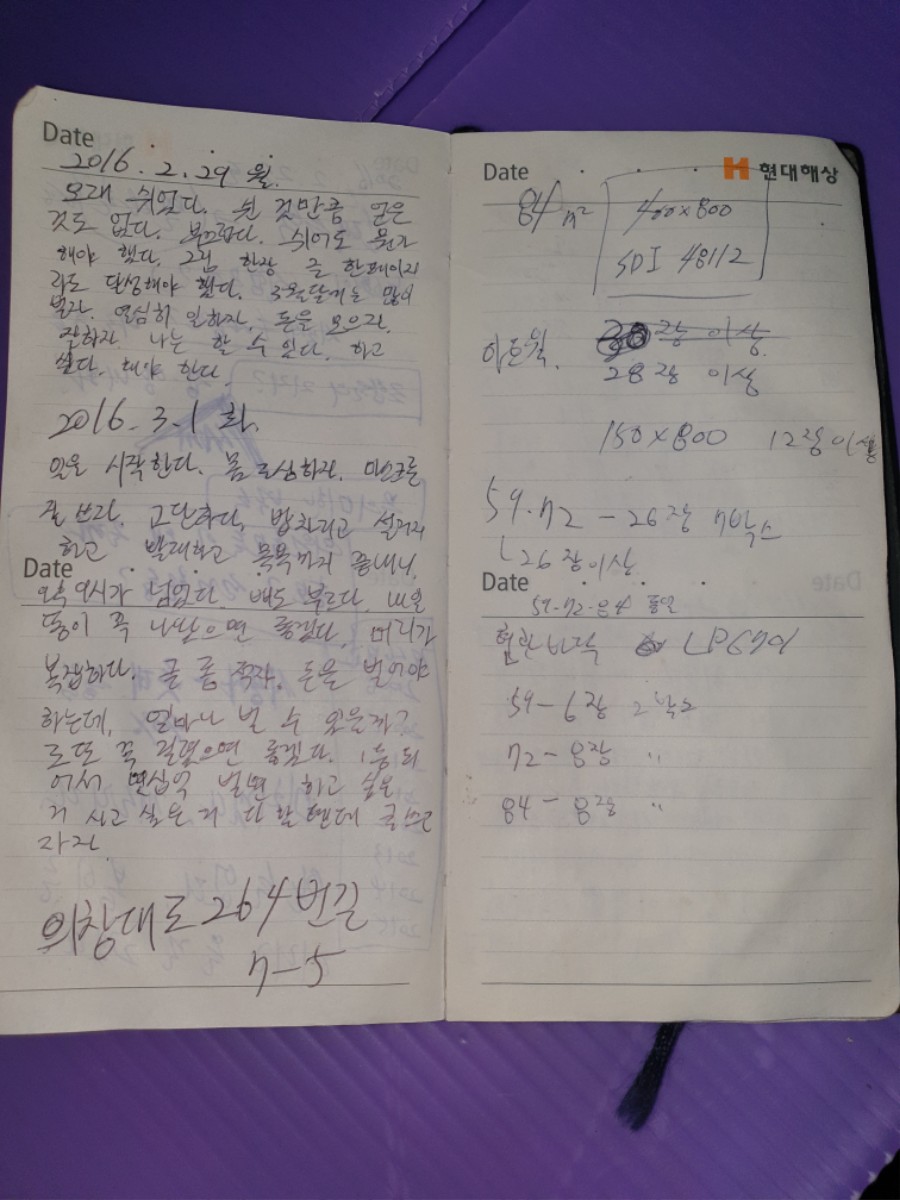 Date
2016. 2. 29 월.
오래 쉬었다. 쉰 것만큼 얻은
것도 없다. 부끄럽다. 쉬어도 뭔가
해야 했다. 그림 한장 글 한페이지
라도 달성해야 했다. 3월달에는 많이
벌자. 열심히 일하자. 돈을 모으자.
잘하자. 나는 할 수 있다. 하고
싶다. 해야 한다.
2016. 3. 1 화.
일을 시작한다. 몸 조심하자. 마스크를
잘 쓰자. 고단하다. 밥차리고 설거지
하고 빨래하고 목욕까지 끝내니,
Date
오후 9시가 넘었다. 배도 부르다. 내일
똥이 꼭 나왔으면 좋겠다. 머리가
복잡하다. 글 좀 적자. 돈을 벌어야
하는데, 얼마나 벌 수 있을까?
로또 꼭 걸렸으면 좋겠다. 1등 되
어서 몇십억 벌면 하고 싶은
거 사고 싶은 거 다 할텐데 글쓰고
자자.
의창대로 264번길
7-5
Date
현대해상
84 m²
400×800
SDI 48112
아트월.
장 이상
28장 이상
150×800 12장 이상
59.72 - 26장 7박스
26장이상
Date
59-72-84 동일
현관바닥 LPG701
59-6장 2박스
72-8장 "
84-8장 "